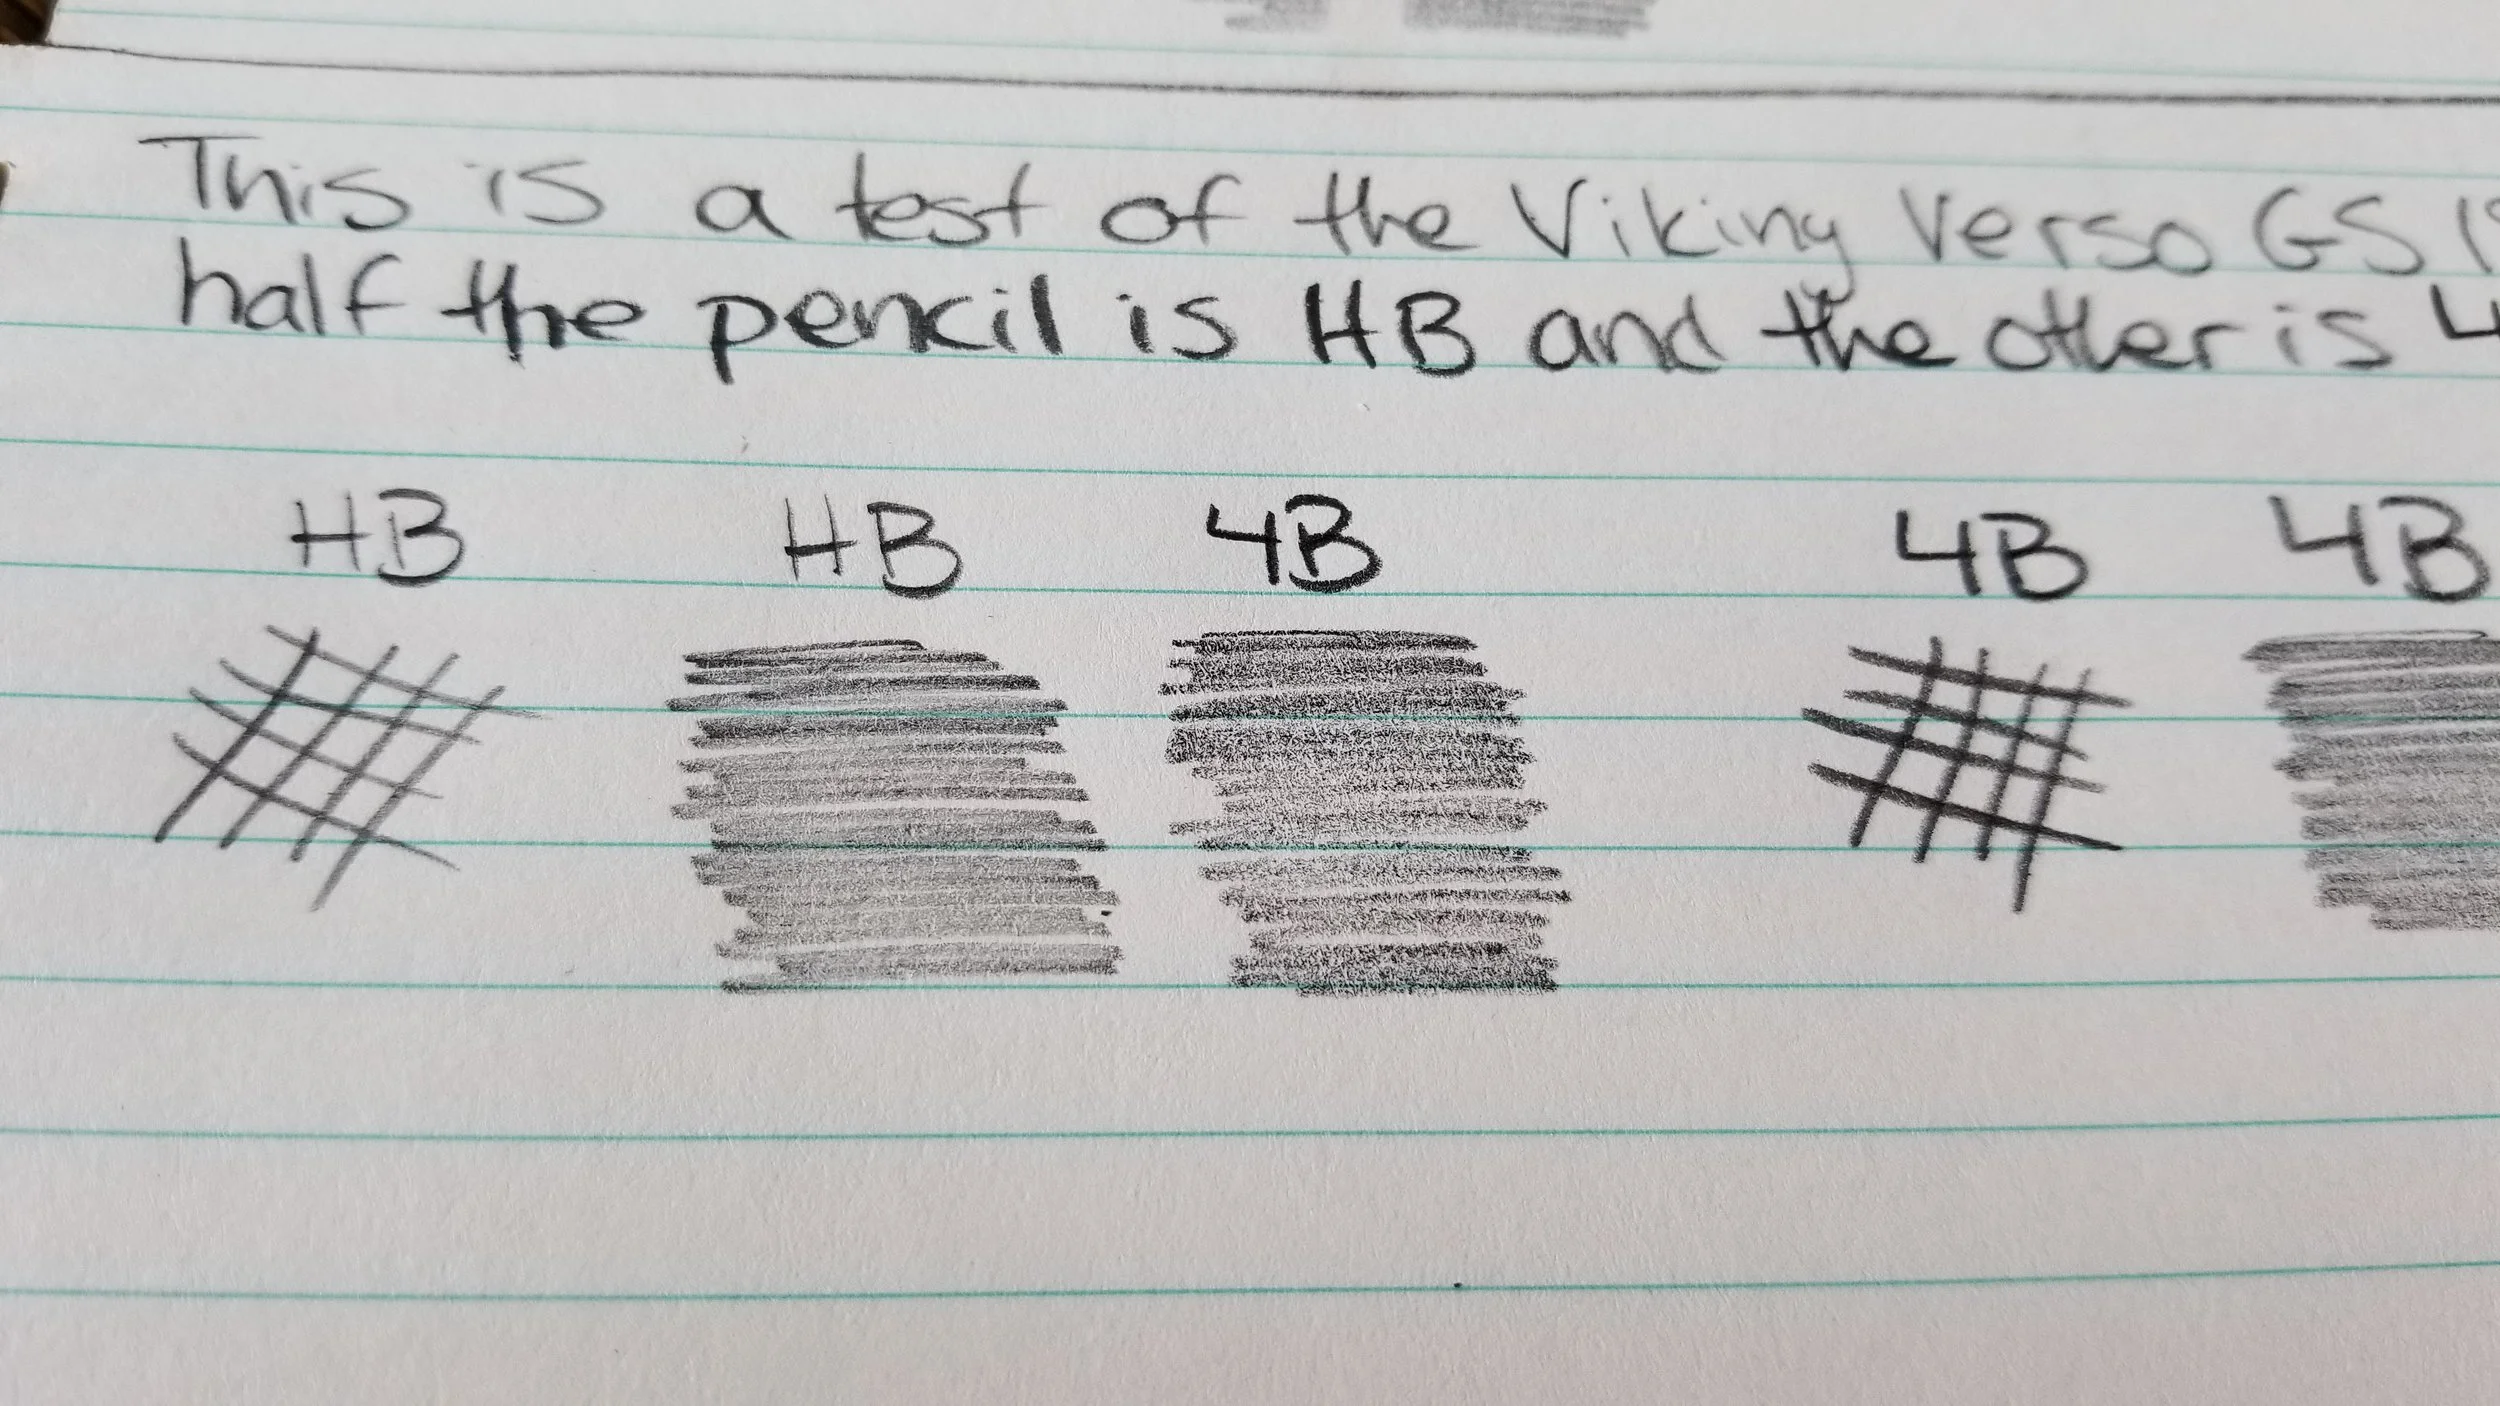 This is a test of the Viking Verso GS
half the pencil is HB and the other is 4
HB HB 4B 4B 4B